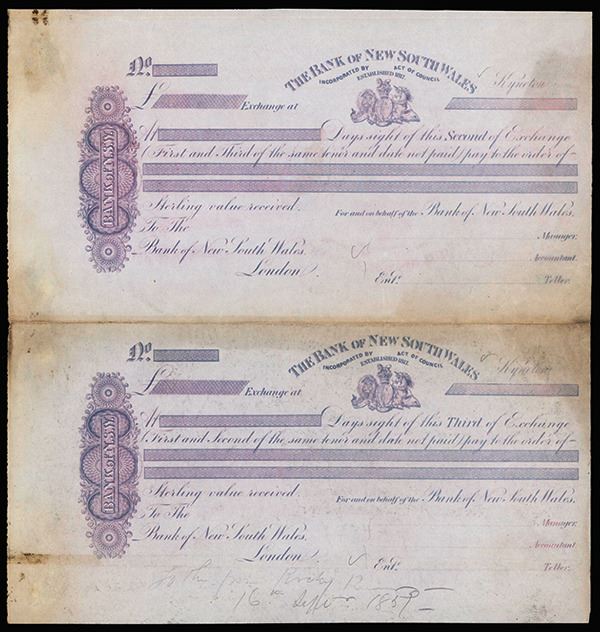 No.
THE BANK OF NEW SOUTH WALES
INCORPORATED BY ACT OF COUNCIL
ESTABLISHED 1817
Kyneton
£ Exchange at
BANK OF N.S.W.
At Days sight of this Second of Exchange
(First and Third of the same tenor and date not paid) pay to the order of
Sterling value received. For and on behalf of the Bank of New South Wales.
To The Manager.
Bank of New South Wales, Accountant.
London Entd. Teller.
No.
THE BANK OF NEW SOUTH WALES
INCORPORATED BY ACT OF COUNCIL
ESTABLISHED 1817
Kyneton
£ Exchange at
BANK OF N.S.W.
At Days sight of this Third of Exchange
(First and Second of the same tenor and date not paid) pay to the order of
Sterling value received. For and on behalf of the Bank of New South Wales.
To The Manager.
Bank of New South Wales, Accountant.
London Entd. Teller.
16th 1859